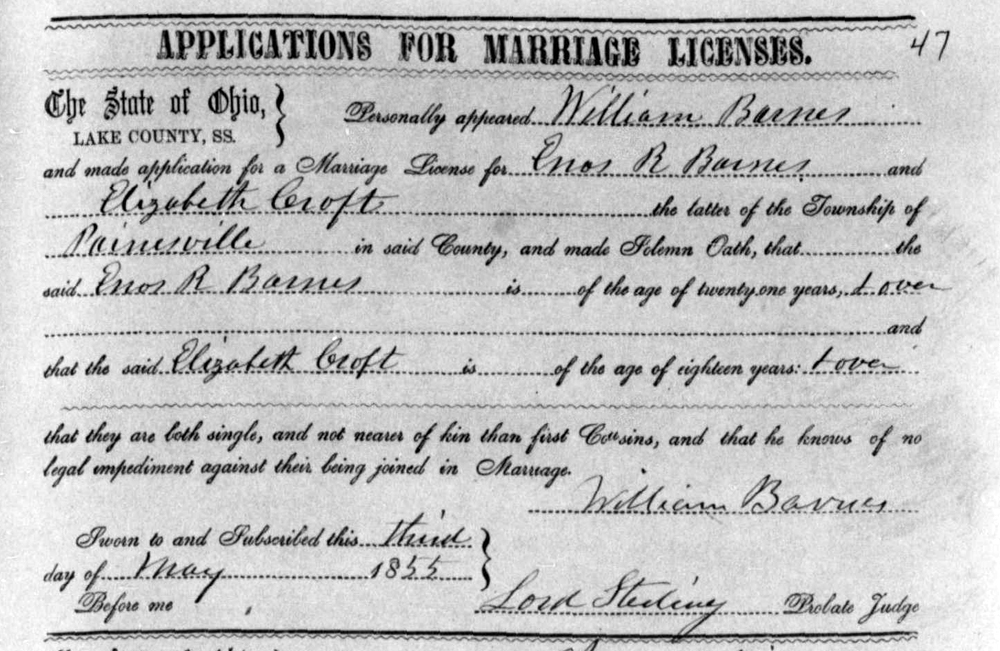 APPLICATIONS FOR MARRIAGE LICENSES. 47
The State of Ohio,
LAKE COUNTY, SS.
Personally appeared William Barnes
and made application for a Marriage License for Enos R Barnes and
Elizabeth Croft the latter of the Township of
Painesville in said County, and made Solemn Oath, that the
said Enos R Barnes is of the age of twenty one years, & over
and
that the said Elizabeth Croft is of the age of eighteen years: & over
that they are both single, and not nearer of kin than first Cousins, and that he knows of no
legal impediment against their being joined in Marriage.
William Barnes
Sworn to and Subscribed this third
day of May 1855
Before me Lord Sterling Probate Judge